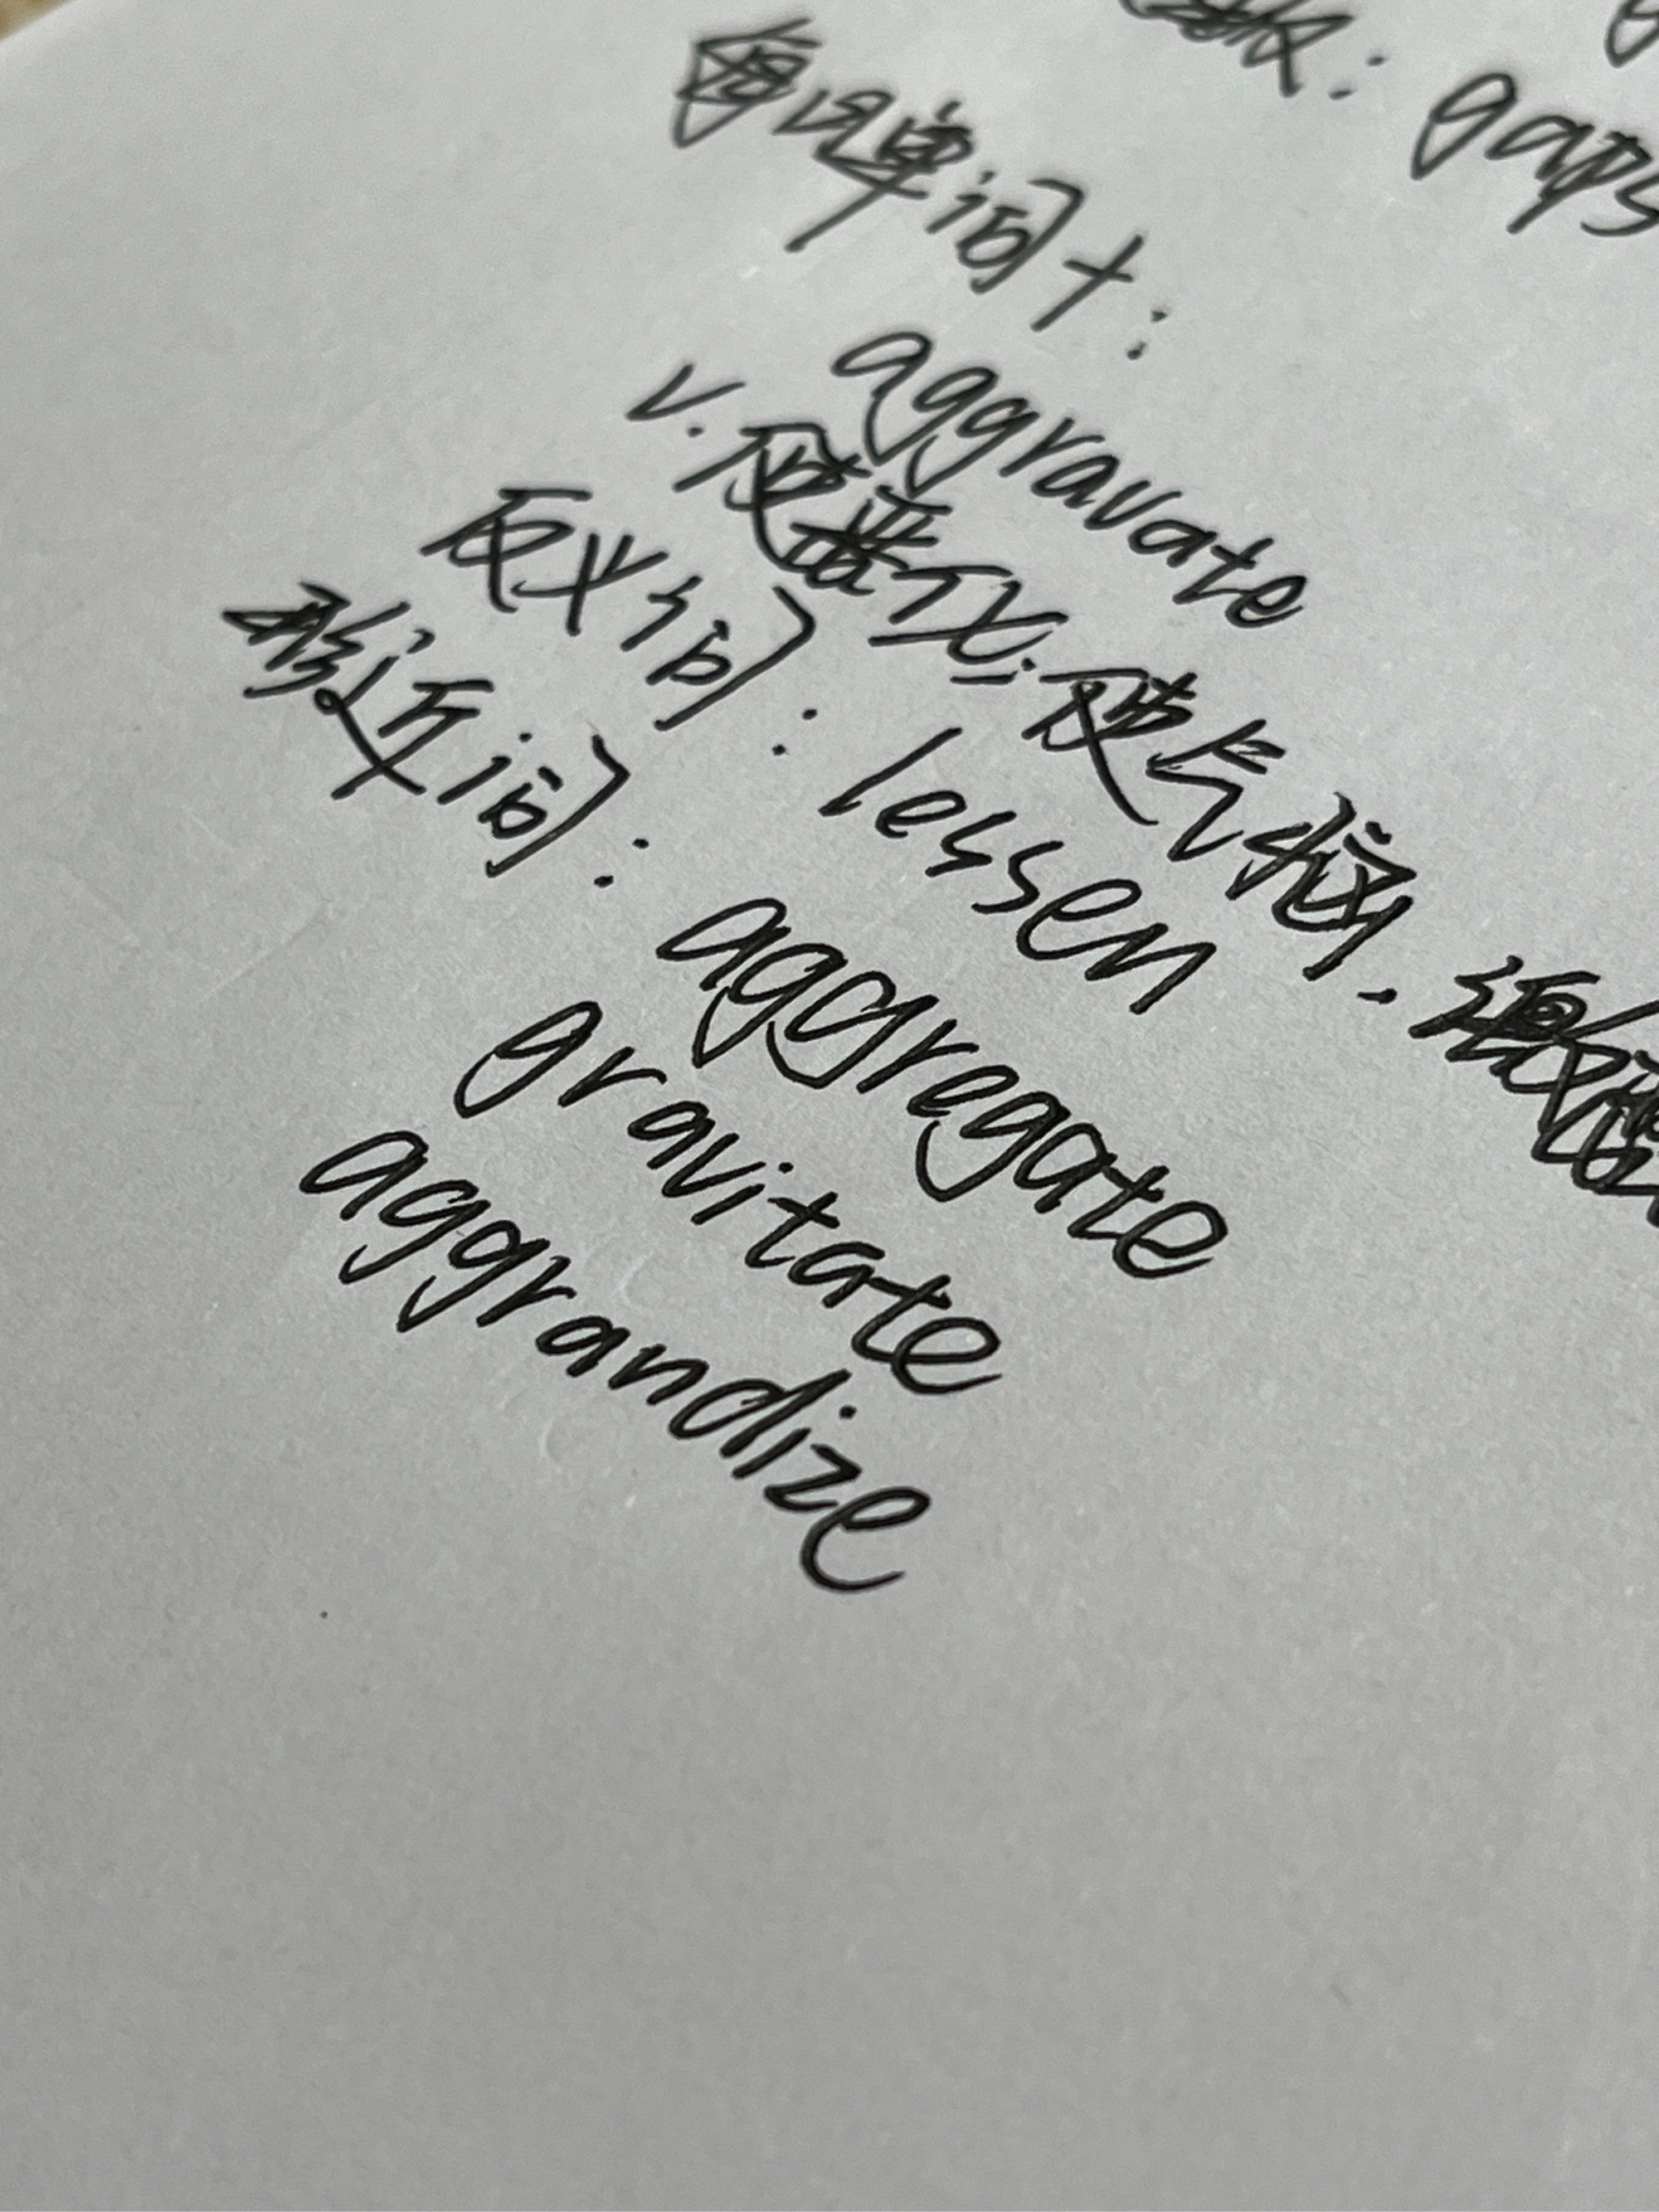 板: gaps
每日单词+:
aggravate
v. 使恶化; 使气恼.
反义词: lessen
形近词: aggregate
gravitate
aggrandize